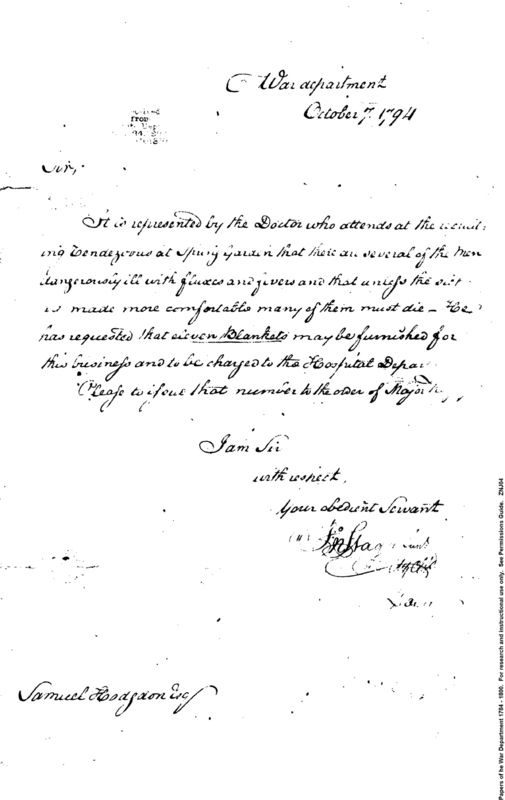 War department
October 7. 1794
from
Sir,
It is represented by the Doctor who attends at the recruit
ing Rendezvous at Spring Garden that there are several of the Men
dangerously ill with fluxes and fevers and that unless the sick
is made more comfortable many of them must die – He
has requested that eleven Blankets may be furnished for
this business and to be charged to the Hospital Depar
Please to issue that number to the order of Major
I am Sir
with respect,
Your obedient Servant
Jno Stagg
Samuel Hodgdon Esq
Papers of he War Department 1784 - 1800. For research and instructional use only. See Permissions Guide. ZNJ04